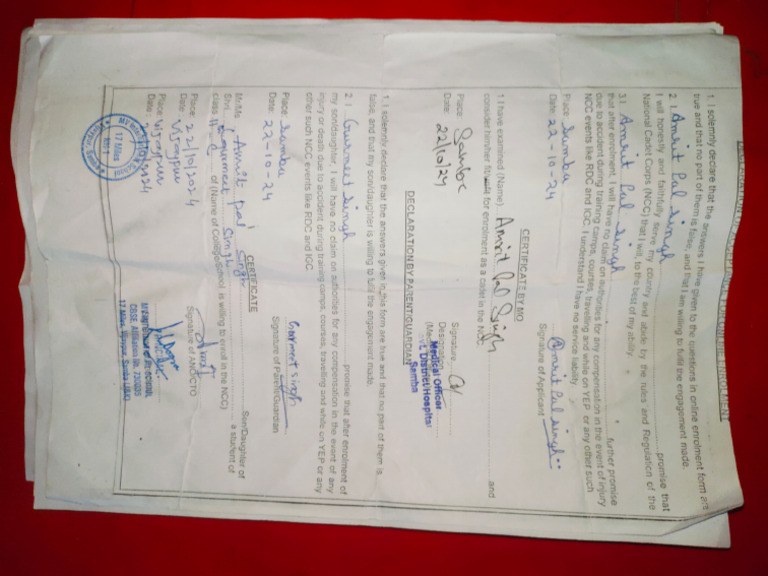 DECLARATION & ACCEPTANCE FOR ONLINE ENROLMENT
1. I solemnly declare that the answers I have given to the questions in online enrolment form are
true and that no part of them is false, and that I am willing to fulfil the engagement made.
2. I Amrit Pal Singh promise that
I will honestly and faithfully serve my country and abide by the rules and Regulation of the
National Cadet Corps (NCC) that I will, to the best of my ability.
3. I Amrit Pal Singh further promise
that after enrolment, I will have no claim on authorities for any compensation in the event of injury
due to accident during training camps, courses, travelling and while on YEP or any other such
NCC events like RDC and IGC. I understand I have no service liability.
Place: Samba
Date: 22-10-24
Amrit Pal Singh
Signature of Applicant
CERTIFICATE BY MO
1. I have examined (Name) Amrit Pal Singh and
consider him/her fit for enrolment as a cadet in the NCC.
Place: Samba
Date: 22/10/24
Signature
Designation
Medical Officer
District Hospital
Samba
DECLARATION BY PARENT/GUARDIAN
1. I solemnly declare that the answers given in the form are true and that no part of them is
false and that my son/daughter is willing to fulfil the engagement made.
2. I Gurmeet Singh promise that after enrolment of
my son/daughter, I will have no claim on authorities for any compensation in the event of any
injury or death due to accident during training camps, courses, training and while on YEP or any
other such NCC events like RDC and IGC.
Place: Samba
Date: 22-10-24
Gurmeet Singh
Signature of Parent/Guardian
CERTIFICATE
Mr/Ms Amrit Pal Singh Son/Daughter of
Shri Gurmeet Singh a student of
class 11th of (Name of College/school is willing to enroll in the NCC)
Place: 22/10/2024
Date: Vijaypur
Signature of ANO/CTO
Place: Vijaypur
Date:
17 Miles
CBSE Affiliation No. 730035
17 Miles, Vijaypur, Samba (J&K)